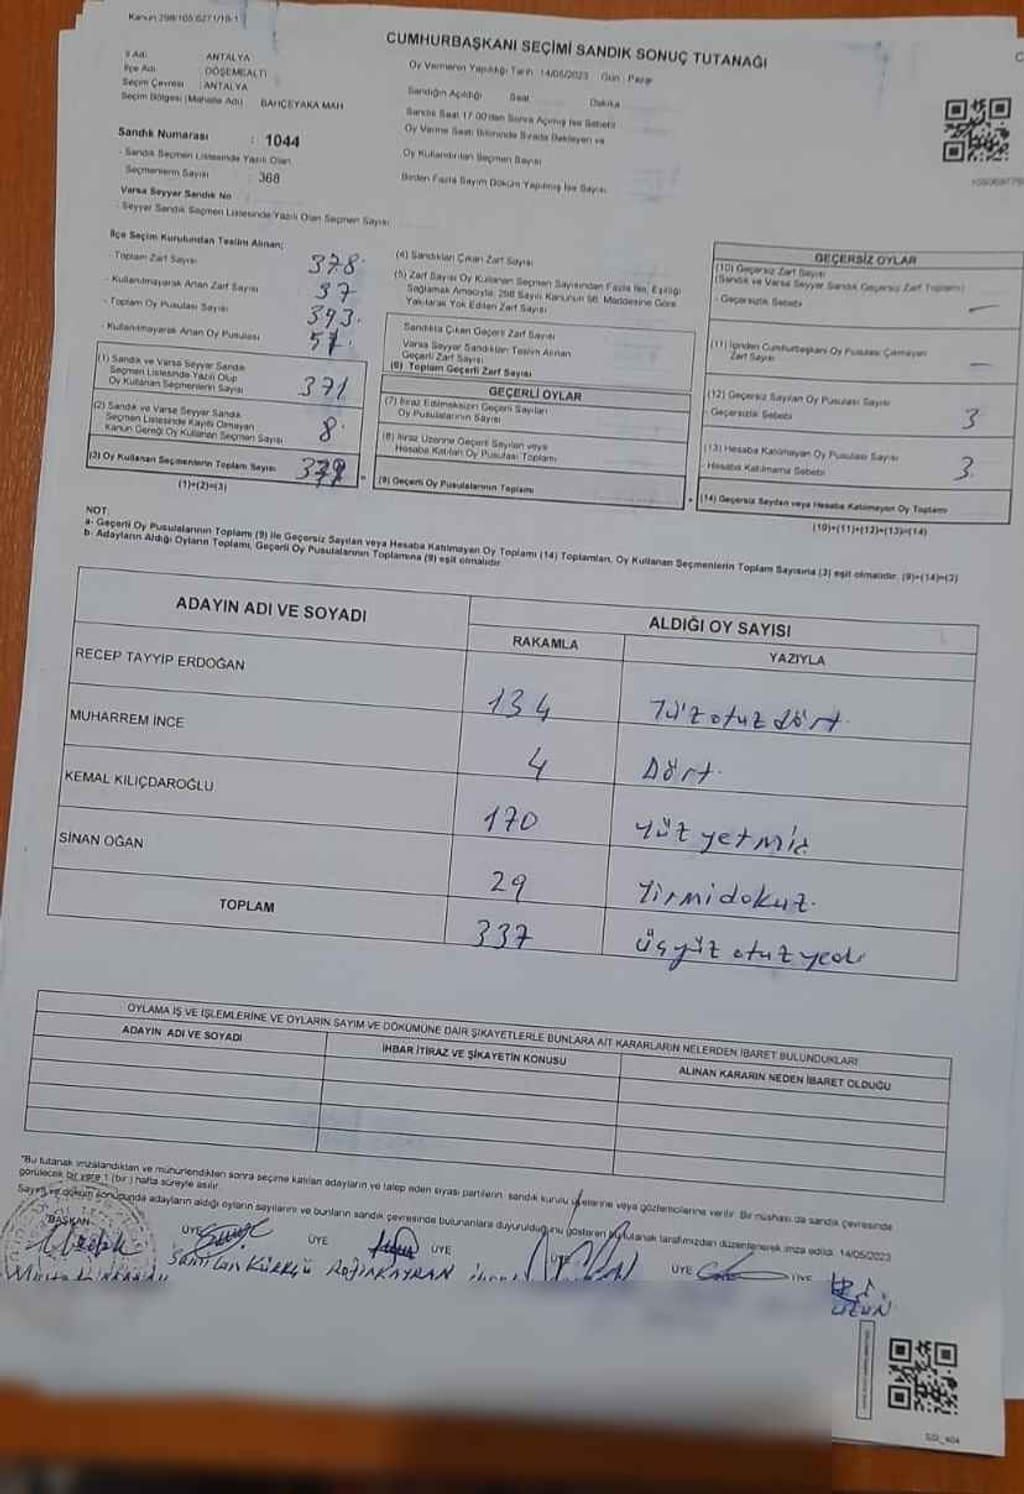 Kanun 298/105 6271/19-1
CUMHURBAŞKANI SEÇİMİ SANDIK SONUÇ TUTANAĞI
İl Adı : ANTALYA
İlçe Adı : DÖŞEMEALTI
Seçim Çevresi : ANTALYA
Seçim Bölgesi (Mahalle Adı) BAHÇEYAKA MAH
Sandık Numarası : 1044
- Sandık Seçmen Listesinde Yazılı Olan
Seçmenlerin Sayısı 368
Varsa Seyyar Sandık No
- Seyyar Sandık Seçmen Listesinde Yazılı Olan Seçmen Sayısı
Oy Vermenin Yapıldığı Tarih 14/05/2023 Gün : Pazar
Sandığın Açıldığı Saat Dakika
Sandık Saat 17:00'den Sonra Açılmış İse Sebebi
Oy Verme Saati Bitiminde Sırada Bekleyen ve
Oy Kullandırılan Seçmen Sayısı
Birden Fazla Sayım Döküm Yapılmış İse Sayısı
İlçe Seçim Kurulundan Teslim Alınan;
- Toplam Zarf Sayısı 378
- Kullanılmayarak Artan Zarf Sayısı 37
- Toplam Oy Pusulası Sayısı 393
- Kullanılmayarak Artan Oy Pusulası 51
(1) Sandık ve Varsa Seyyar Sandık
Seçmen Listesinde Yazılı Olup
Oy Kullanan Seçmenlerin Sayısı 371
(2) Sandık ve Varsa Seyyar Sandık
Seçmen Listesinde Kayıtlı Olmayan
Kanun Gereği Oy Kullanan Seçmen Sayısı 8
(3) Oy Kullanan Seçmenlerin Toplam Sayısı
(1)+(2)=(3)
(4) Sandıktan Çıkan Zarf Sayısı
(5) Zarf Sayısı Oy Kullanan Seçmen Sayısından Fazla İse, Eşitliği
Sağlamak Amacıyla, 298 Sayılı Kanunun 98. Maddesine Göre
Yakılarak Yok Edilen Zarf Sayısı
Sandıkta Çıkan Geçerli Zarf Sayısı
Varsa Seyyar Sandıktan Teslim Alınan
Geçerli Zarf Sayısı
(6) Toplam Geçerli Zarf Sayısı
GEÇERLİ OYLAR
(7) İtiraz Edilmeksizin Geçerli Sayılan
Oy Pusulalarının Sayısı
(8) İtiraz Üzerine Geçerli Sayılan veya
Hesaba Katılan Oy Pusulası Toplamı
(9) Geçerli Oy Pusulalarının Toplamı
GEÇERSİZ OYLAR
(10) Geçersiz Zarf Sayısı
(Sandık ve Varsa Seyyar Sandık Geçersiz Zarf Toplamı)
- Geçersizlik Sebebi —
(11) İçinden Cumhurbaşkanı Oy Pusulası Çıkmayan
Zarf Sayısı —
(12) Geçersiz Sayılan Oy Pusulası Sayısı
- Geçersizlik Sebebi 3
(13) Hesaba Katılmayan Oy Pusulası Sayısı
- Hesaba Katılmama Sebebi 3
(14) Geçersiz Sayılan veya Hesaba Katılmayan Oy Toplamı
(10)+(11)+(12)+(13)=(14)
NOT:
a- Geçerli Oy Pusulalarının Toplamı (9) ile Geçersiz Sayılan veya Hesaba Katılmayan Oy Toplamı (14) Toplamları, Oy Kullanan Seçmenlerin Toplam Sayısına (3) eşit olmalıdır. (9)+(14)=(3)
b- Adayların Aldığı Oyların Toplamı, Geçerli Oy Pusulalarının Toplamına (9) eşit olmalıdır.
ADAYIN ADI VE SOYADI
ALDIĞI OY SAYISI
RAKAMLA YAZIYLA
RECEP TAYYİP ERDOĞAN 134 Yüz otuz dört
MUHARREM İNCE 4 Dört
KEMAL KILIÇDAROĞLU 170 yüz yetmiş
SİNAN OĞAN 29 Yirmidokuz
TOPLAM 337 üçyüz otuz yedi
OYLAMA İŞ VE İŞLEMLERİNE VE OYLARIN SAYIM VE DÖKÜMÜNE DAİR ŞİKAYETLERLE BUNLARA AİT KARARLARIN NELERDEN İBARET BULUNDUKLARI
ADAYIN ADI VE SOYADI İHBAR İTİRAZ VE ŞİKAYETİN KONUSU ALINAN KARARIN NEDEN İBARET OLDUĞU
"Bu tutanak imzalandıktan ve mühürlendikten sonra seçime katılan adayların ve talep eden siyasi partilerin sandık kurulu üyelerine veya gözlemcilerine verilir. Bir nüshası da sandık çevresinde
görülecek bir yere 1 (bir) hafta süreyle asılır.
Sayım ve döküm sonucunda adayların aldığı oyların sayılarını ve bunların sandık çevresinde bulunanlara duyurulduğunu gösteren bu tutanak tarafımızdan düzenlenerek imza edildi. 14/05/2023
BAŞKAN ÜYE ÜYE ÜYE ÜYE ÜYE ÜYE
UZUN